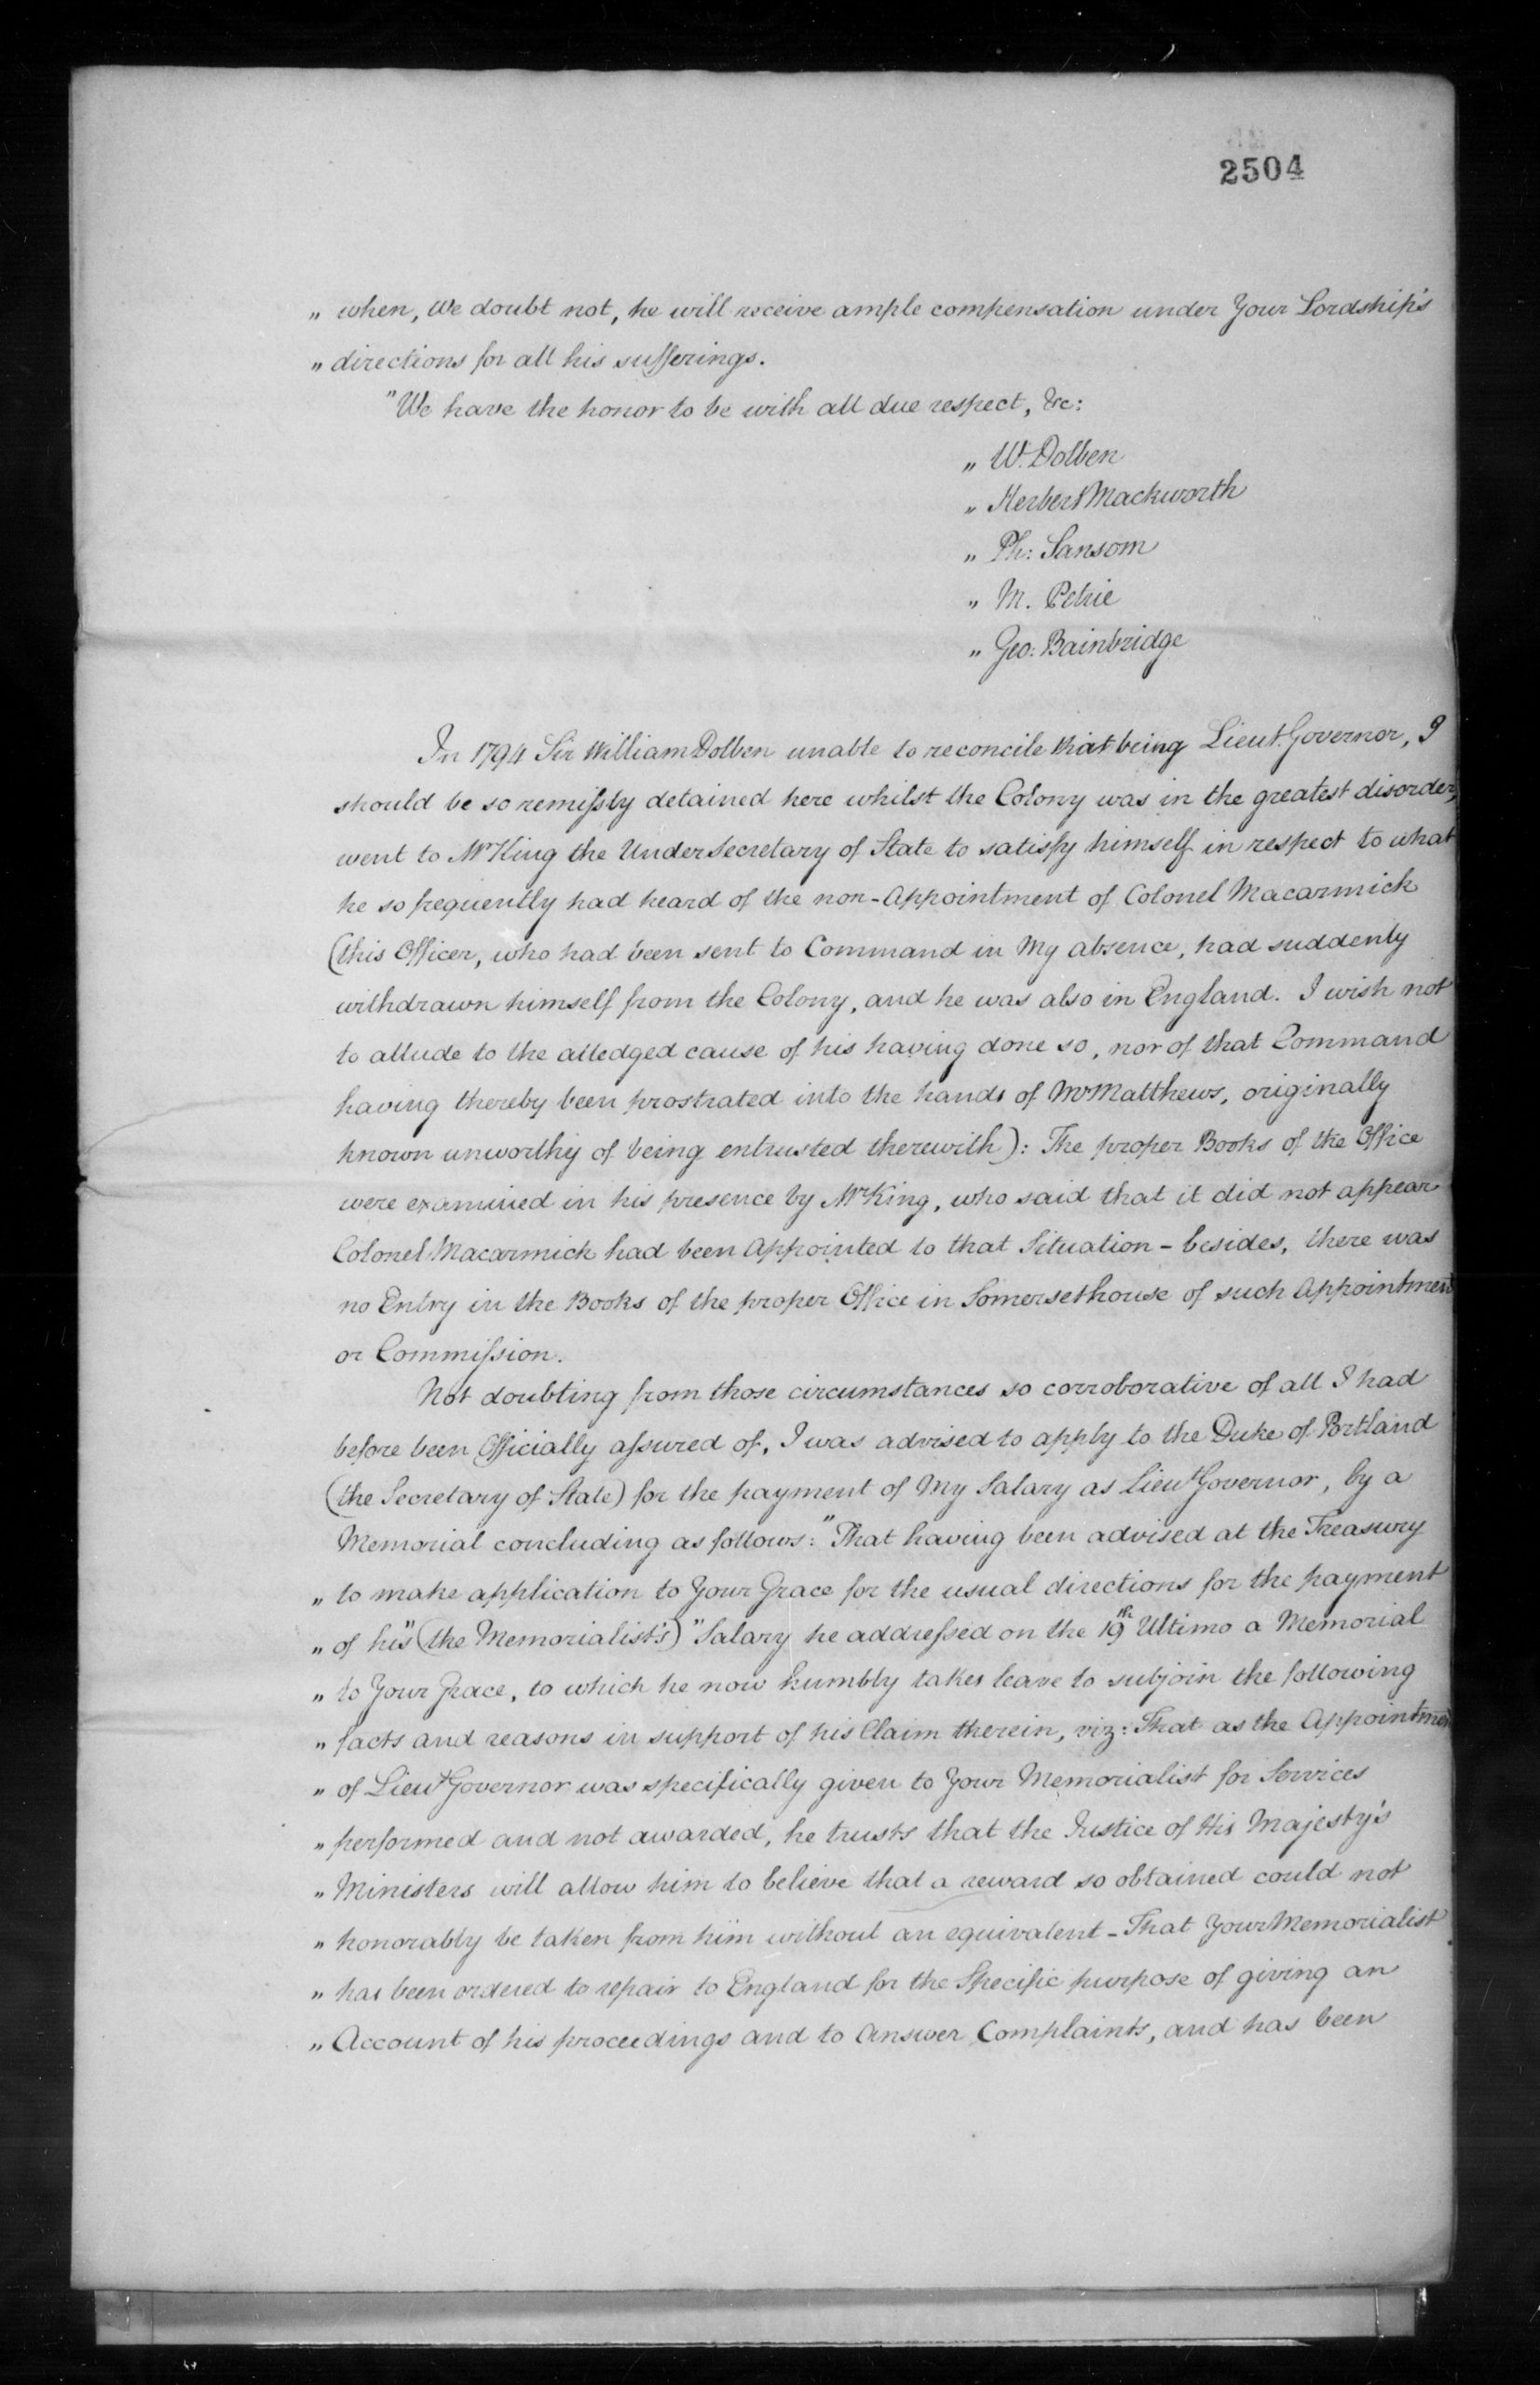 2504
„ when, We doubt not, he will receive ample compensation under Your Lordship's
„ directions for all his sufferings.
"We have the honor to be with all due respect, &c:
„ W. Dolben
„ Herbert Mackworth
„ Ph: Sansom
„ M. Petrie
„ Geo: Bainbridge
In 1794 Sir William Dolben unable to reconcile that being Lieut. Governor, I
should be so remissly detained here whilst the Colony was in the greatest disorder,
went to Mr King the Under Secretary of State to satisfy himself in respect to what
he so frequently had heard of the non-Appointment of Colonel Macarmick
(this Officer, who had been sent to Command in My absence, had suddenly
withdrawn himself from the Colony, and he was also in England. I wish not
to allude to the alledged cause of his having done so, nor of that Command
having thereby been prostrated into the hands of Mr Matthews, originally
known unworthy of being entrusted therewith): The proper Books of the Office
were examined in his presence by Mr King, who said that it did not appear
Colonel Macarmick had been Appointed to that Situation - besides, there was
no Entry in the Books of the proper Office in Somersethouse of such Appointment
or Commission.
Not doubting from those circumstances so corroborative of all I had
before been Officially assured of, I was advised to apply to the Duke of Portland
(the Secretary of State) for the payment of My Salary as Lieut Governor, by a
Memorial concluding as follows: "That having been advised at the Treasury
„ to make application to Your Grace for the usual directions for the payment
„ of his" (the Memorialist's) "Salary he addressed on the 19th Ultimo a Memorial
„ to Your Grace, to which he now humbly takes leave to subjoin the following
„ facts and reasons in support of his Claim therein, viz: That as the Appointmen
„ of Lieut Governor was specifically given to Your Memorialist for Services
„ performed and not awarded, he trusts that the Justice of His Majesty's
„ Ministers will allow him to believe that a reward so obtained could not
„ honorably be taken from him without an equivalent - That Your Memorialist
„ has been ordered to repair to England for the Specific purpose of giving an
„ Account of his proceedings and to Answer Complaints, and has been